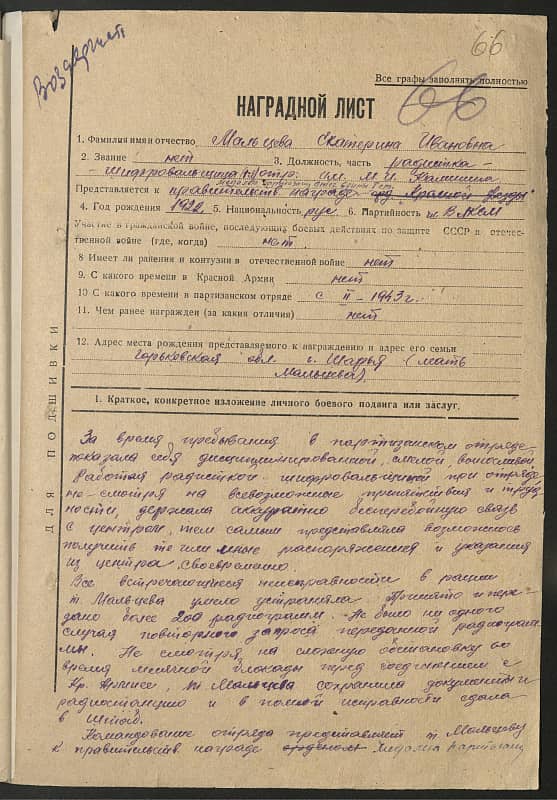 66
Воздержат.
Все графы заполнять полностью
66
НАГРАДНОЙ ЛИСТ
1. Фамилия имя и отчество Мальцева Екатерина Ивановна
2. Звание нет 3. Должность, часть радистка-
шифровальщица п/отр. им. М. И. Калинина
Представляется к правительств. награде орд. "Красной Звезды"
4. Год рождения 1922 5. Национальность рус 6. Партийность чл. ВЛКСМ
Участие в гражданской войне, последующих боевых действиях по защите СССР в отечес-
твенной войне (где, когда) нет
8 Имеет ли ранения и контузии в отечественной войне нет
9. С какого времени в Красной Армии нет
10 С какого времени в партизанском отряде с II-1943 г.
11. Чем ранее награжден (за какия отличия) нет
12. Адрес места рождения представляемого к награждению и адрес его семьи
Горьковская обл. г. Шарья (мать
Мальцева).
1. Краткое, конкретное изложение личного боевого подвига или заслуг.
ДЛЯ ПОДШИВКИ
За время пребывания в партизанском отряде
показала себя дисциплинированной, смелой,
Работая радисткой-шифровальщицей при отряде
не смотря на всевозможные препятствия и труд-
ности, держала аккуратно бесперебойную связь
с центром, тем самым представлялась возможность
получить те или иные распоряжения и указания
из центра своевременно.
Все встречающиеся неисправности в рации
т. Мальцева умело устраняла. Принято и пере-
дано более 200 радиограмм. Не было ни одного
случая повторного запроса переданной радиограм-
мы. Не смотря на сложную обстановку во
время блокады перед соединением с
Кр. Армией, т. Мальцева сохранила документы и
радиостанцию и в полной исправности сдала
в штаб.
Командование отряда представляет т. Мальцеву
к правительств. награде орденом медалью партизану